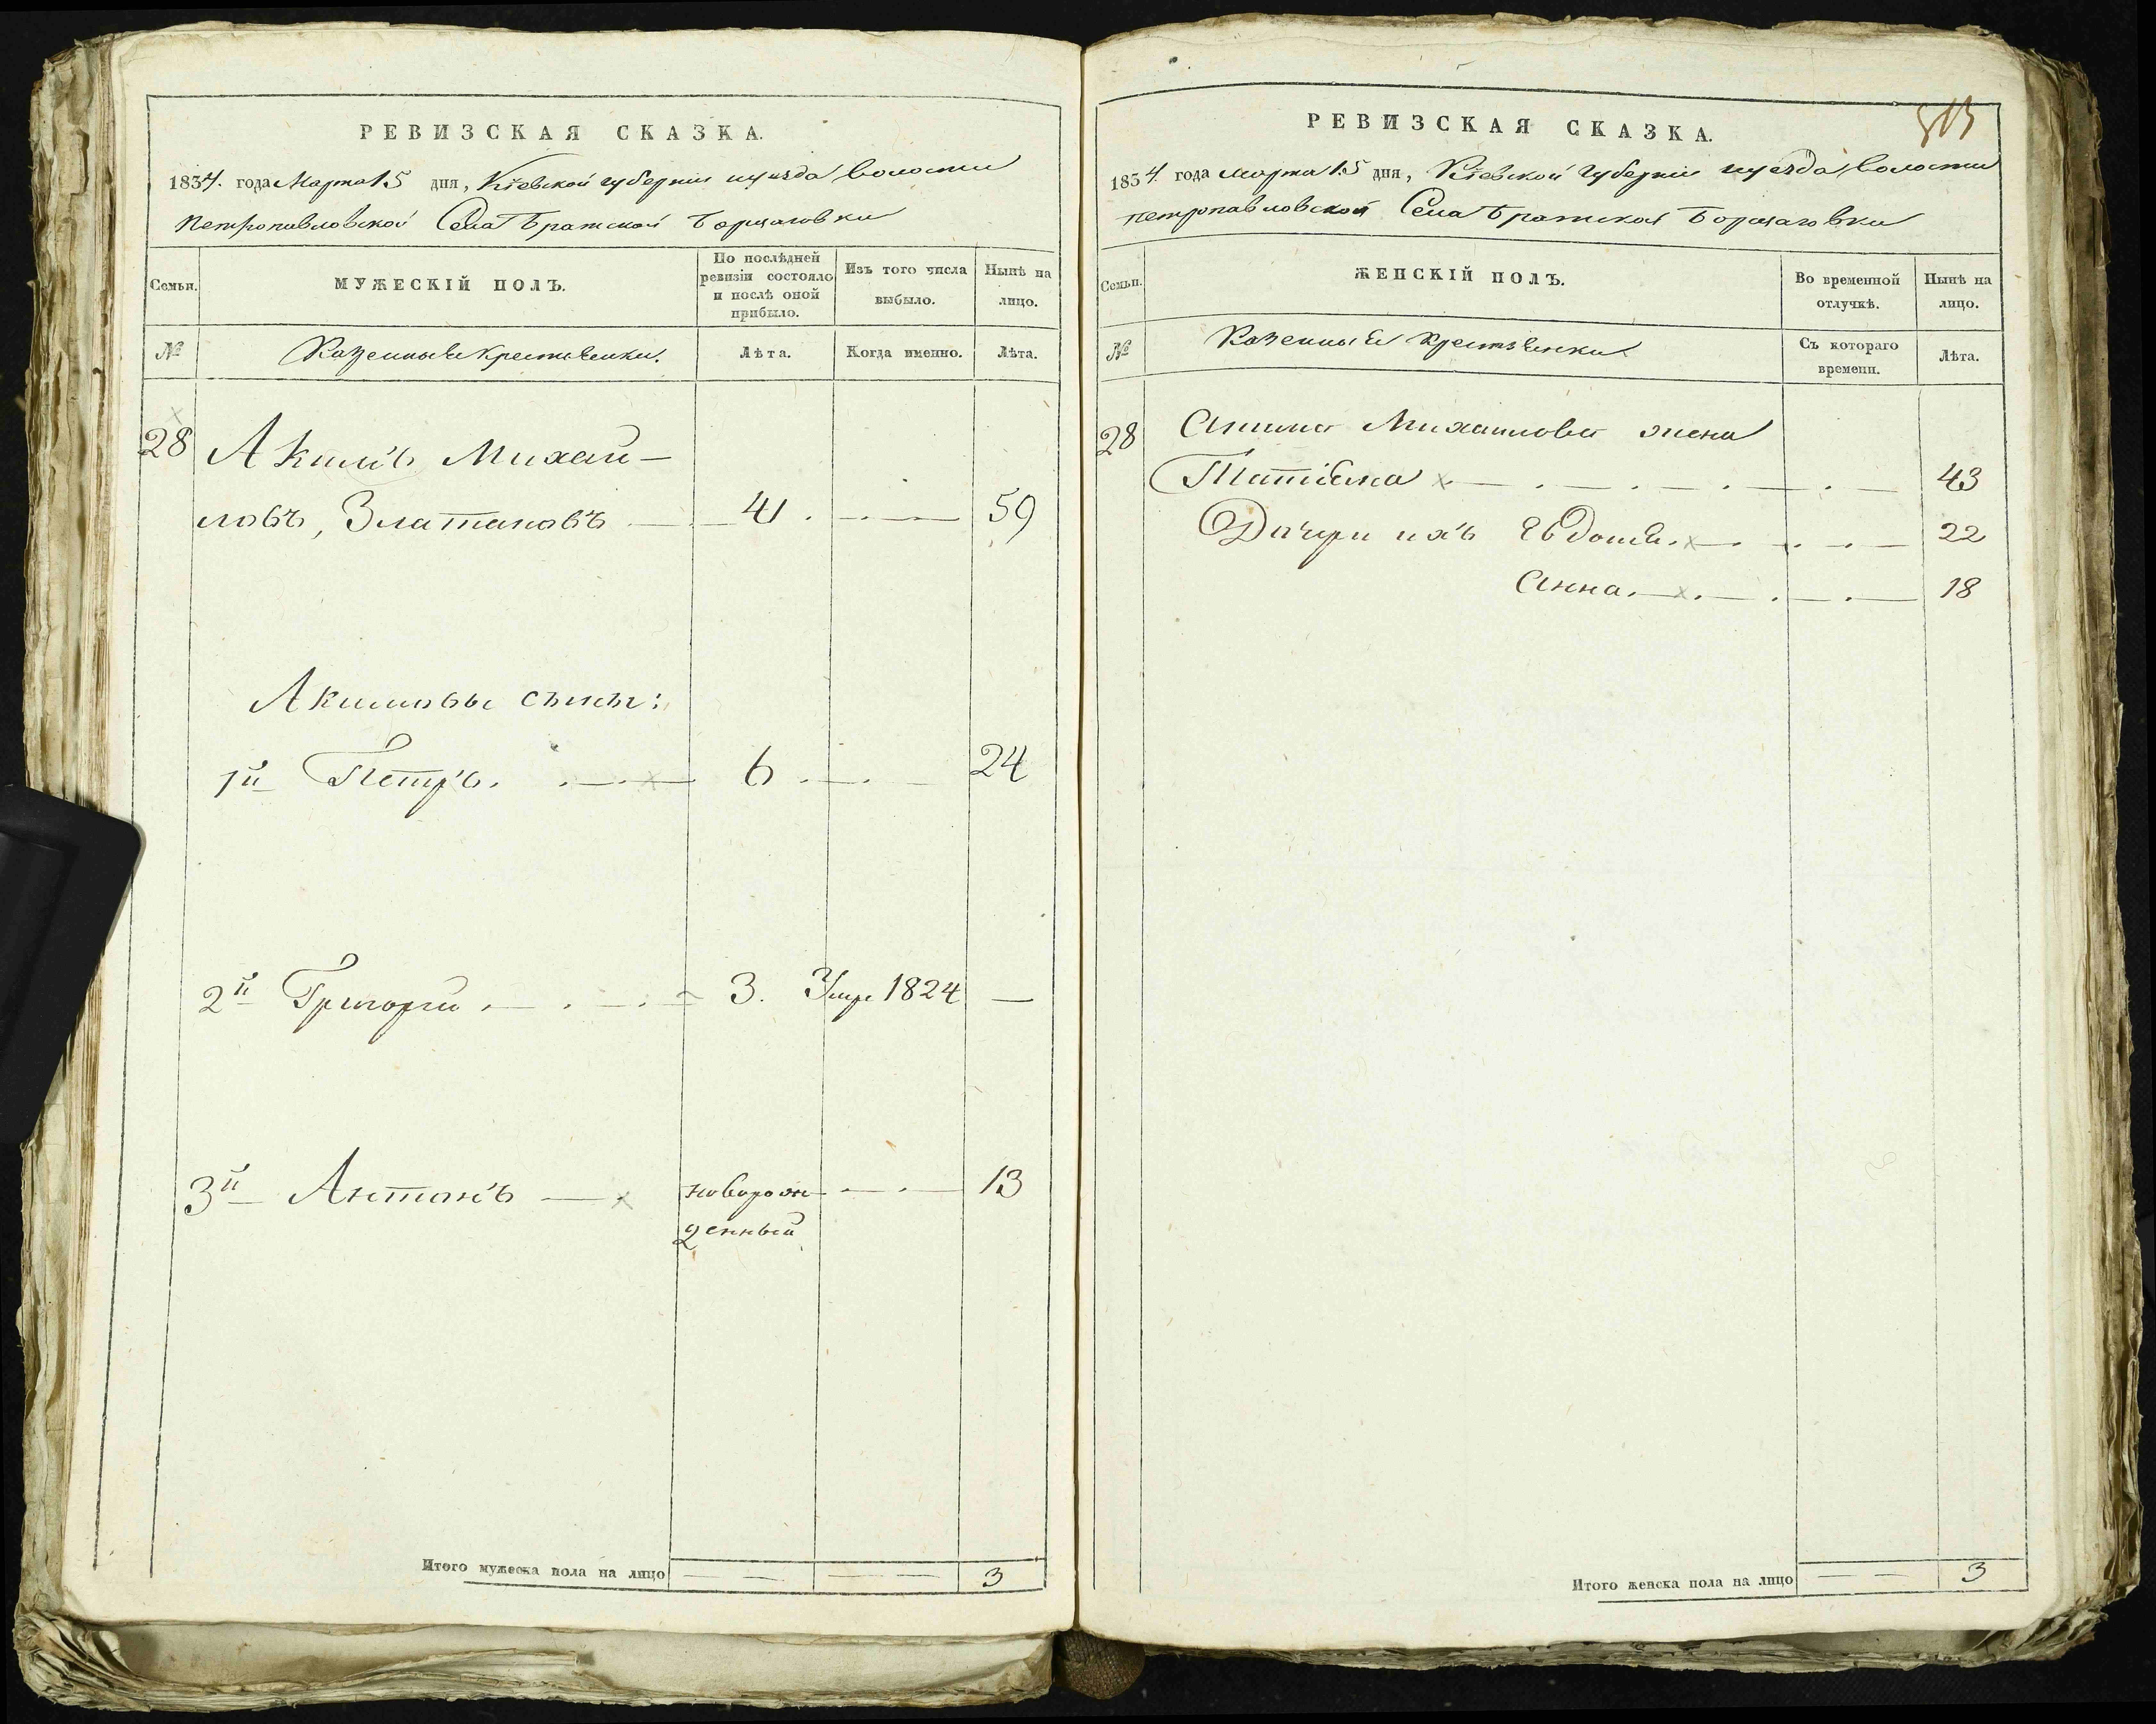 РЕВИЗСКАЯ СКАЗКА.
1834. года Марта 15 дня, Кіевской губерніи и уезда волости
Петропавловской Села Братской Борщаговки
Семьи.
МУЖЕСКІЙ ПОЛЪ.
По послѣдней ревизіи состояло и послѣ оной прибыло.
Изъ того числа выбыло.
Нынѣ на лицо.
№
Казенные крестьянки.
Лѣта.
Когда именно.
Лѣта.
28 Акимъ Михай-
ловъ, Златановъ 41 59
Акимовы сыны:
1й Петръ. 6 24
2й Григорій 3. Умре 1824 —
3й Антонъ новорож 13
денный
Итого мужеска пола на лицо 3
РЕВИЗСКАЯ СКАЗКА.
1834 года Марта 15 дня, Кіевской губерніи и уезда волости
Петропавловской Села Братской Борщаговки
Семьи.
ЖЕНСКІЙ ПОЛЪ.
Во временной отлучкѣ.
Нынѣ на лицо.
№
Казенные Крестьянки
Съ котораго времени.
Лѣта.
28 Акима Михайлова жена
Татіана 43
Дочери ихъ Евдокія 22
Анна. 18
Итого женска пола на лицо 3